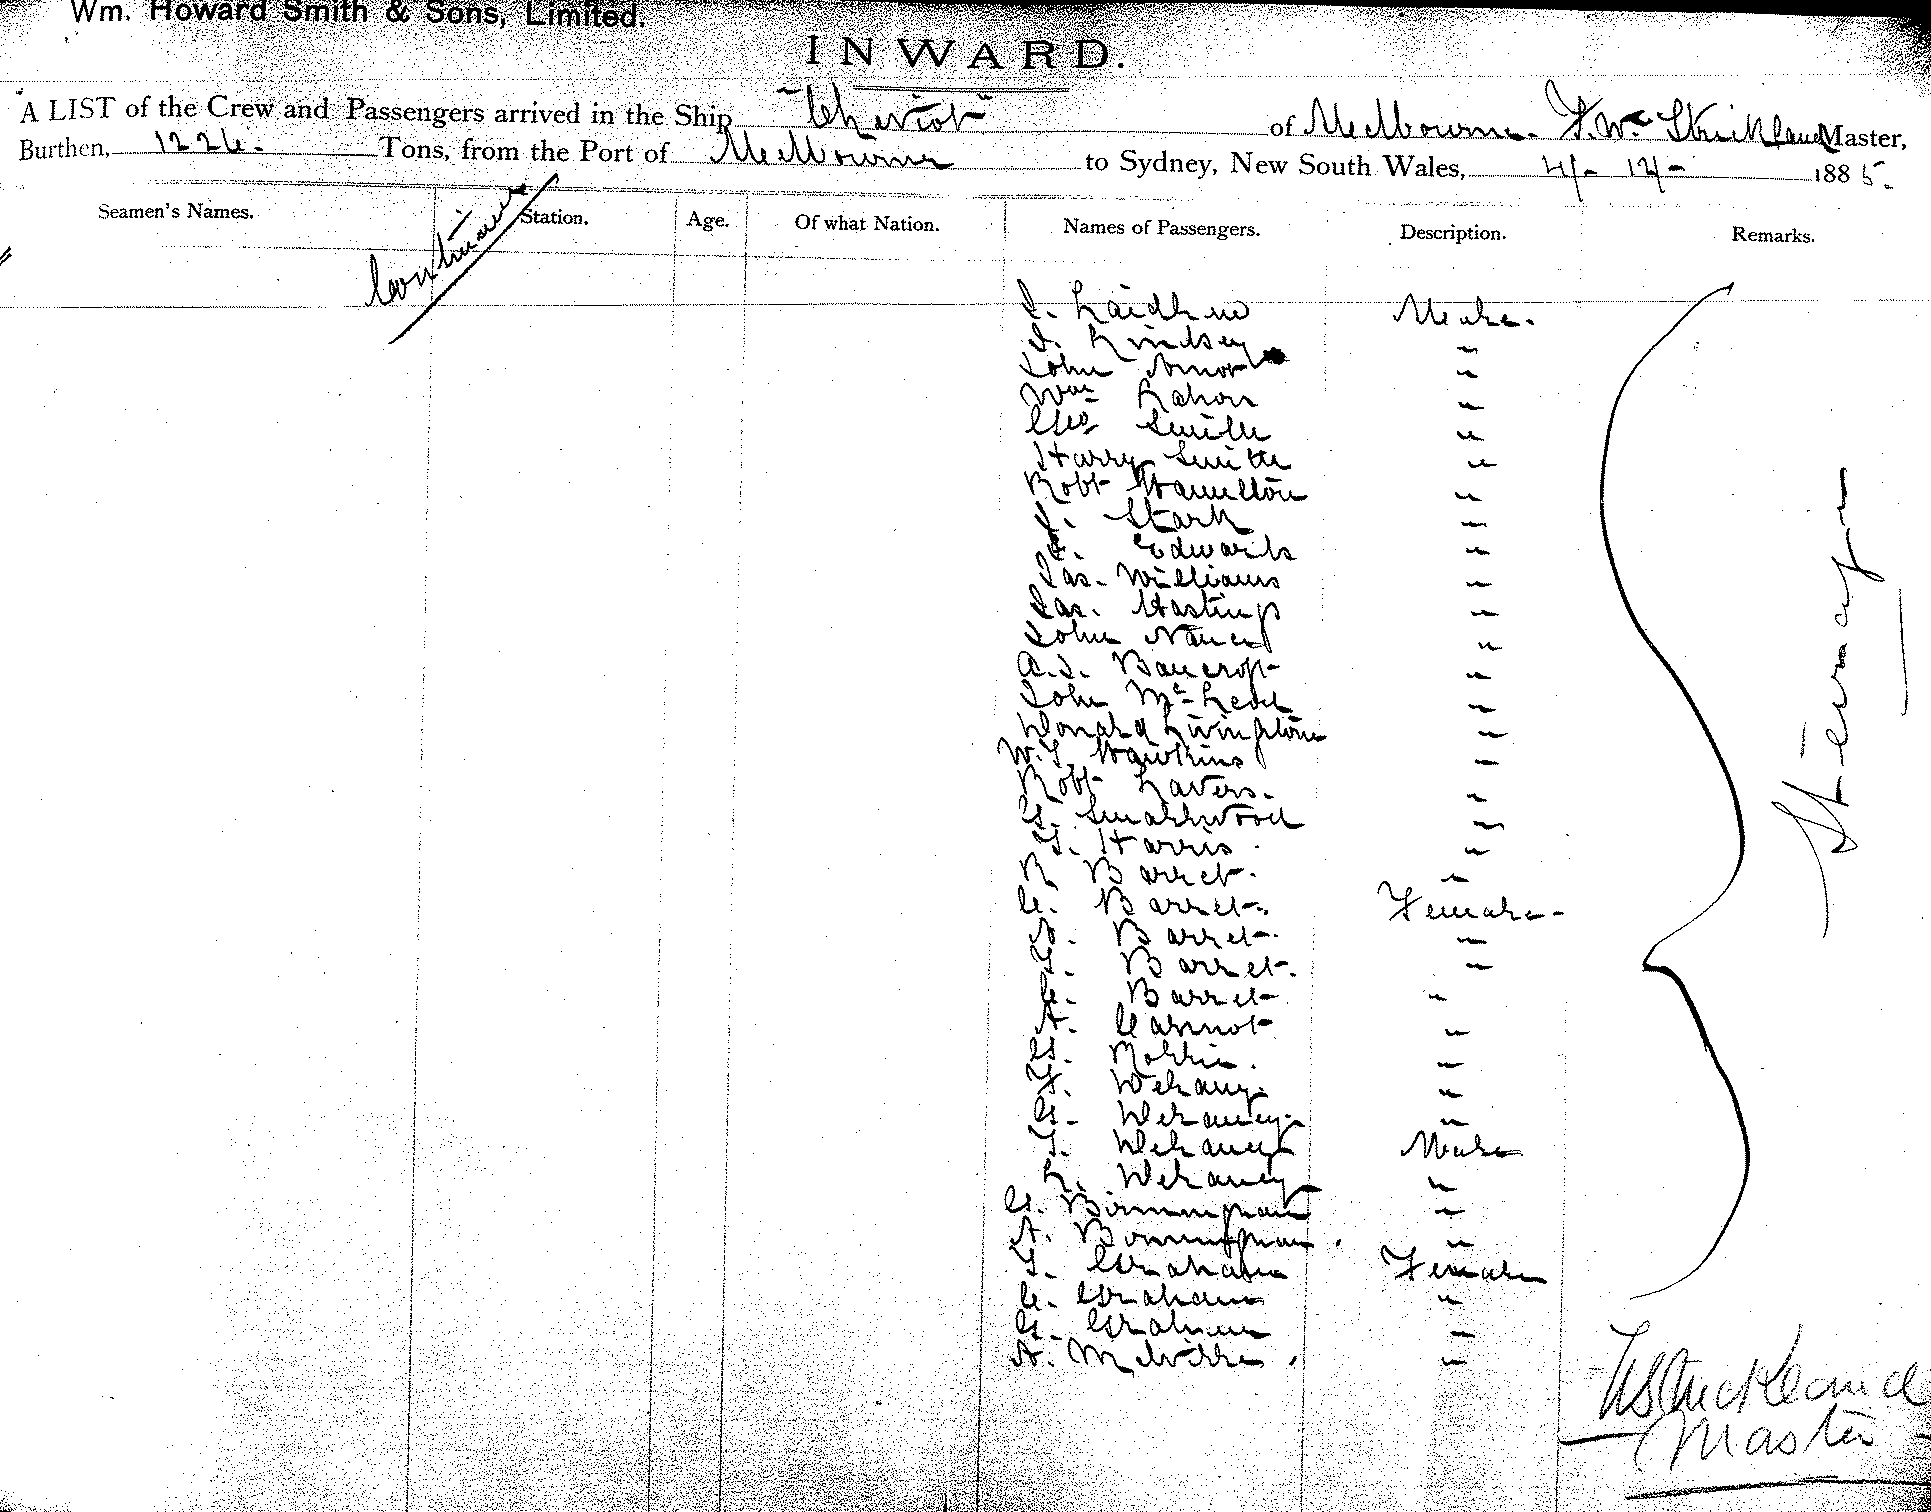 Wm. Howard Smith & Sons, Limited.
INWARD.
A LIST of the Crew and Passengers arrived in the Ship "Cheviot" of Melbourne. Strickland Master,
Burthen, 1226. Tons, from the Port of Melbourne to Sydney, New South Wales, 4-12- 1885.
Seamen's Names. Station. Age. Of what Nation. Names of Passengers. Description. Remarks.
Continued
J. Laidlaw Male.
J. Lindsay "
John "
Wm "
Geo Smith "
Harry Smith "
Robt Hamilton "
J. Stark "
Edwards "
Jas. Williams "
Jas. Hastings "
John Nancy "
A.J. Bancroft "
John McLeod "
Donald Livingstone "
Hawkins "
Robt Lavers. "
G. Smallwood "
Harris "
R Barret. "
C. Barret. Female.
Barret. "
Barret. "
C. Barret "
A. "
"
Delany. "
Delaney. "
Delaney Male
L. Delaney "
G. Birmingham "
A. Birmingham. "
Graham Female
C. Graham "
G. Graham "
A. Melville. "
Steerage
Strickland
Master